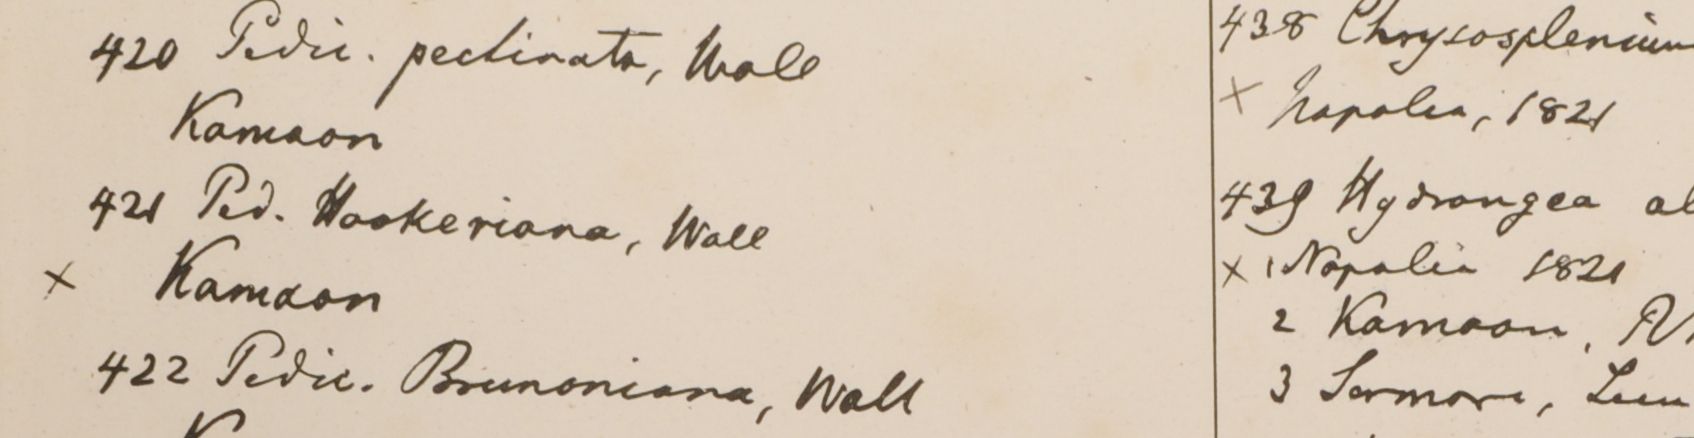 420 Pedic. pectinata, Wall
Kamaon
421 Ped. Hookeriana, Wall
× Kamaon
422 Pedic. Brunoniana, Wall
438 Chrysosplenium
× Napalia, 1821
439 Hydrangea al
× 1 Napalia 1821
2 Kamaon, R
3 Sermore,